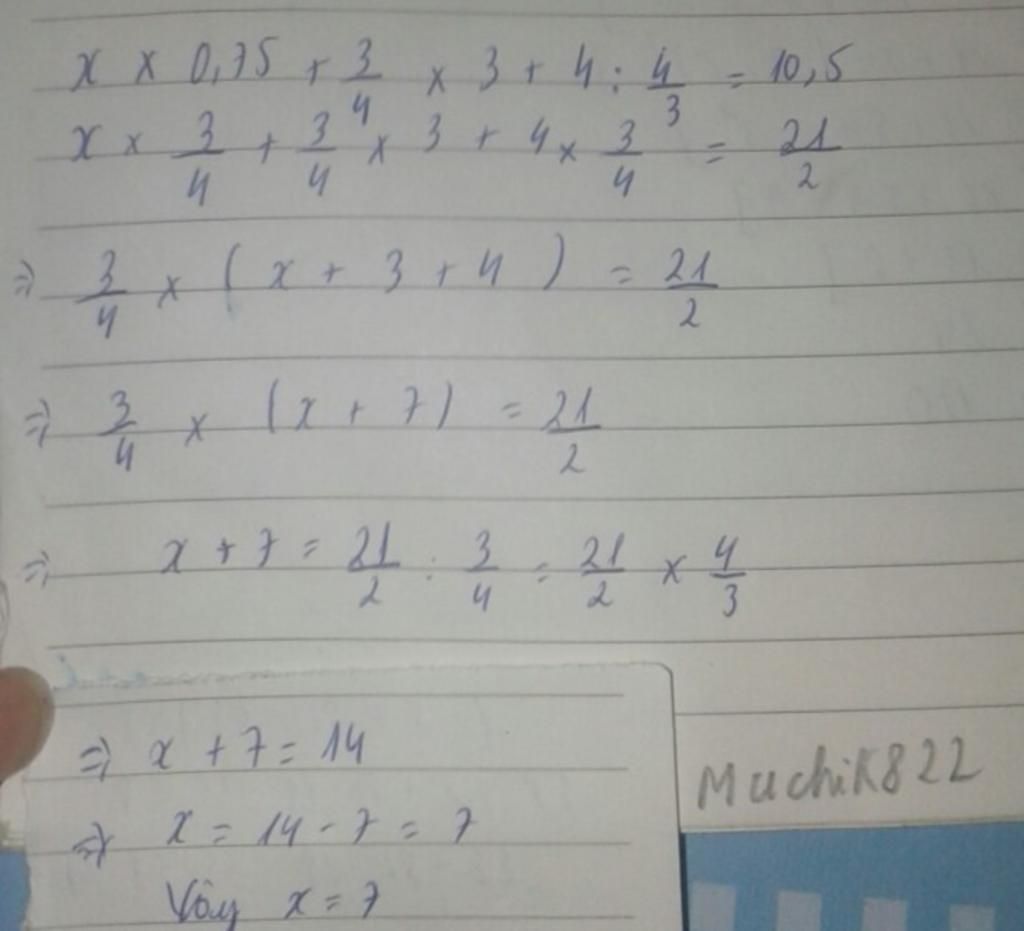 x × 0,75 + 3/4 × 3 + 4 : 4/3 = 10,5
x × 3/4 + 3/4 × 3 + 4 × 3/4 = 21/2
=> 3/4 × ( x + 3 + 4 ) = 21/2
=> 3/4 × (x + 7) = 21/2
=> x + 7 = 21/2 : 3/4 = 21/2 × 4/3
=> x + 7 = 14
=> x = 14 - 7 = 7
Vậy x = 7
Muchik822